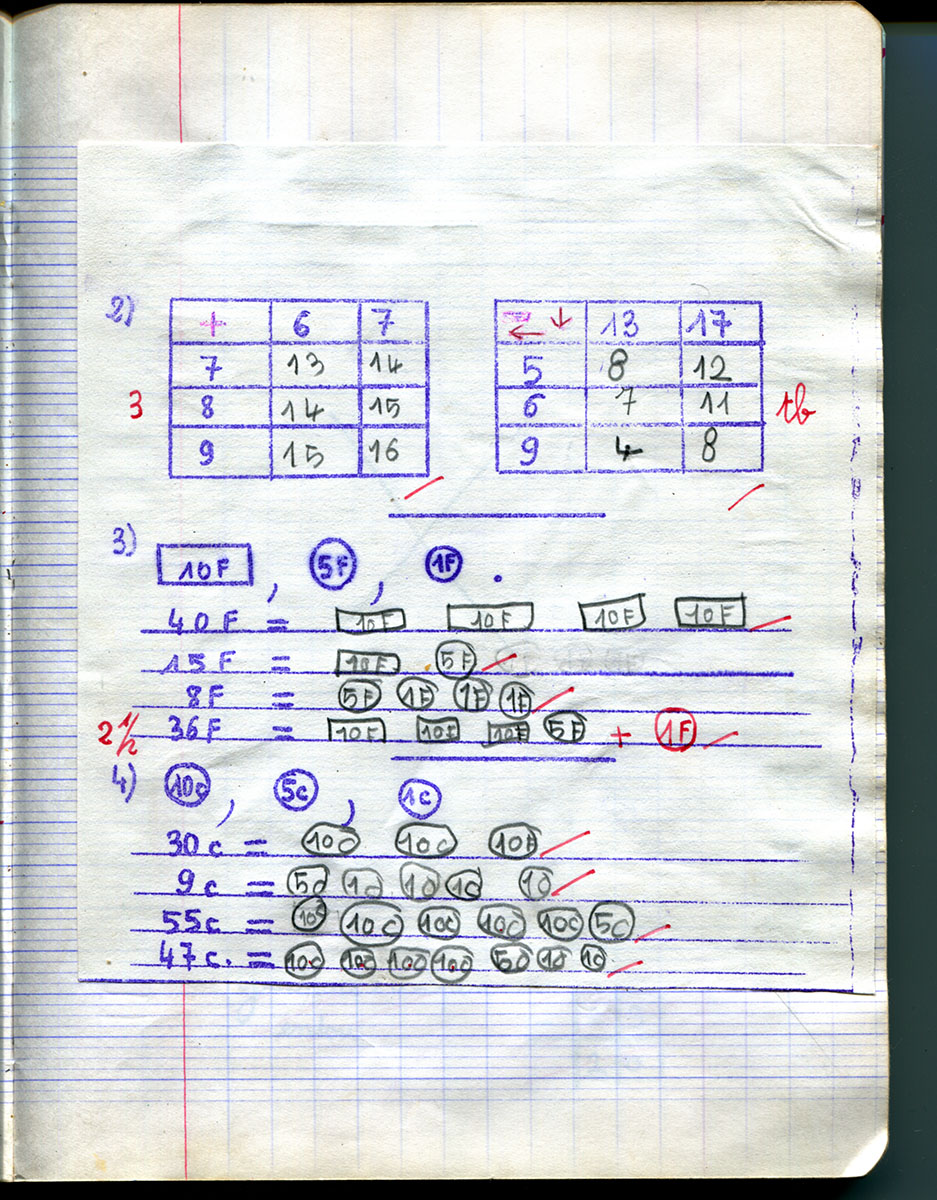 2)
+ 6 7
7 13 14
8 14 15
9 15 16
3
← ↓ 13 17
5 8 12
6 7 11
9 4 8
tb
3)
10F , 5F , 1F .
40F = 10F 10F 10F 10F
15F = 10F 5F
8F = 5F 1F 1F 1F
2 1/2 36F = 10F 10F 10F 5F + 1F
4) 10c , 5c , 1c
30c = 10c 10c 10F
9c = 5c 1c 1c 1c 1c
55c = 10c 10c 10c 10c 10c 5c
47c. = 10c 10c 10c 10c 5c 1c 1c